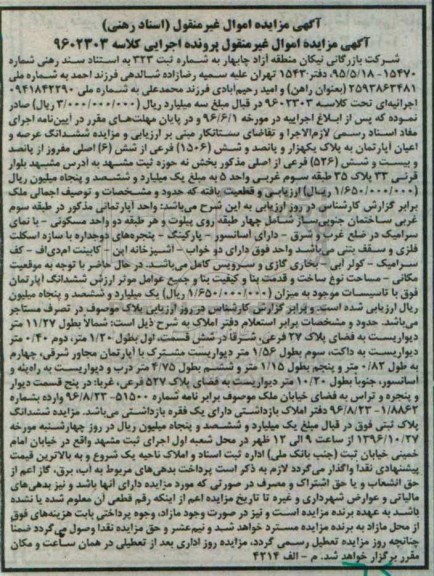 آگهی مزایده اموال غیرمنقول (اسناد رهنی)
آگهی مزایده اموال غیرمنقول پرونده اجرایی کلاسه ۹۶۰۲۳۰۳
شرکت بازرگانی نیکان منطقه آزاد چابهار به شماره ثبت ۳۲۳ به استناد سند رهنی شماره
۱۵۴۷۰-۹۵/۵/۱۸، دفتر ۱۵۴۳ تهران علیه سمیه رضازاده شالدهی فرزند احمد به شماره ملی
۲۵۹۳۸۶۳۴۸۱ (بعنوان راهن) و امید رحیم‌آبادی فرزند محمدعلی به شماره ملی ۰۹۴۱۸۴۲۲۹۰
اجرائیه‌ای تحت کلاسه ۹۶۰۲۳۰۳ در قبال مبلغ سه میلیارد ریال (۳/۰۰۰/۰۰۰/۰۰۰ ریال) صادر
نموده که پس از ابلاغ اجراییه در مورخه ۹۶/۶/۱ و در پایان مهلت‌های مقرر در آیین‌نامه اجرای
مفاد اسناد رسمی لازم‌الاجرا و تقاضای بستانکار مبنی بر ارزیابی و مزایده ششدانگ عرصه و
اعیان آپارتمان به پلاک یکهزار و پانصد و شش (۱۵۰۶) فرعی از شش (۶) اصلی مفروز از پانصد
و بیست و شش (۵۲۶) فرعی از اصلی مذکور بخش نه حوزه ثبت مشهد به آدرس مشهد بلوار
قرنی ۳۳ پلاک ۳۵ طبقه سوم غربی واحد ۵ به مبلغ یک میلیارد و ششصد و پنجاه میلیون ریال
(۱/۶۵۰/۰۰۰/۰۰۰ ریال) ارزیابی و قطعیت یافته که حدود و مشخصات و توصیف اجمالی ملک
برابر گزارش کارشناس در روز ارزیابی به این شرح می‌باشد: واحد آپارتمانی مذکور در طبقه سوم
غربی ساختمان جنوبی‌ساز شامل چهار طبقه روی پیلوت و هر طبقه دو واحد مسکونی - با نمای
سرامیک در ضلع غرب و شرق - دارای آسانسور - پارکینگ - پنجره‌های دوجداره با سازه اسکلت
فلزی و سقف بتنی می‌باشد واحد فوق دارای دو خواب - آشپزخانه اپن - کابینت ام‌دی‌اف - کف
سرامیک - کولر آبی - بخاری گازی و سرویس کامل می‌باشد. در حال حاضر با توجه به موقعیت
مکانی - مساحت نوع ساخت و قدمت بنا و کیفیت بنا و جمیع عوامل موثر ارزش ششدانگ آپارتمان
فوق با تاسیسات موجود به میزان (۱/۶۵۰/۰۰۰/۰۰۰ ریال) یک میلیارد و ششصد و پنجاه میلیون
ریال ارزیابی شده است. و برابر گزارش کارشناس در روز ارزیابی پلاک موصوف در تصرف مستاجر
می‌باشد. حدود و مشخصات برابر استعلام دفتر املاک به شرح ذیل است: شمالا بطول ۱۱/۲۷ متر
دیواریست به فضای پلاک ۲۷ فرعی، شرقا در شش قسمت، اول بطول ۱/۲۰ متر، دوم ۰/۴۰ متر
دیواریست به داکت، سوم بطول ۱/۵۶ متر دیواریست مشترک با آپارتمان مجاور شرقی، چهارم
به طول ۰/۸۲ متر و پنجم بطول ۱/۱۵ متر و ششم بطول ۴/۷۵ متر درب و دیواریست به راه‌پله و
آسانسور، جنوبا بطول ۱۰/۲۰ متر دیواریست به فضای پلاک ۵۲۷ فرعی، غربا: در پنج قسمت دیوار
و پنجره و تراس به فضای خیابان ملک موصوف برابر نامه شماره ۵۱۵۰۰-۹۶/۸/۲۳ وارده بشماره
۱/۸۸۶۲-۹۶/۸/۲۳ دفتر املاک بازداشتی دارای یک فقره بازداشتی می‌باشد. مزایده ششدانگ
پلاک ثبتی فوق در قبال مبلغ یک میلیارد و ششصد و پنجاه میلیون ریال در روز چهارشنبه مورخه
۱۳۹۶/۱۰/۲۷ از ساعت ۹ الی ۱۲ ظهر در محل شعبه اول اجرای ثبت مشهد واقع در خیابان امام
خمینی خیابان ثبت (جنب بانک ملی) اداره ثبت اسناد و املاک ناحیه یک شروع و به بالاترین قیمت
پیشنهادی نقدا واگذار می‌گردد لازم به ذکر است پرداخت بدهی‌های مربوط به آب، برق، گاز اعم از
حق انشعاب و یا حق اشتراک و مصرف در صورتی که مورد مزایده دارای آنها باشد و نیز بدهی‌های
مالیاتی و عوارض شهرداری و غیره تا تاریخ مزایده اعم از اینکه رقم قطعی آن معلوم شده یا نشده
باشد به عهده برنده مزایده است و نیز در صورت وجود مازاد، وجوه پرداختی بابت هزینه‌های فوق
از محل مازاد به برنده مزایده مسترد خواهد شد و نیم‌عشر و حق مزایده نقدا وصول می‌گردد ضمنا
چنانچه روز مزایده تعطیل رسمی گردد، مزایده روز اداری بعد از تعطیلی در همان ساعت و مکان
مقرر برگزار خواهد شد. م - الف ۴۲۱۴